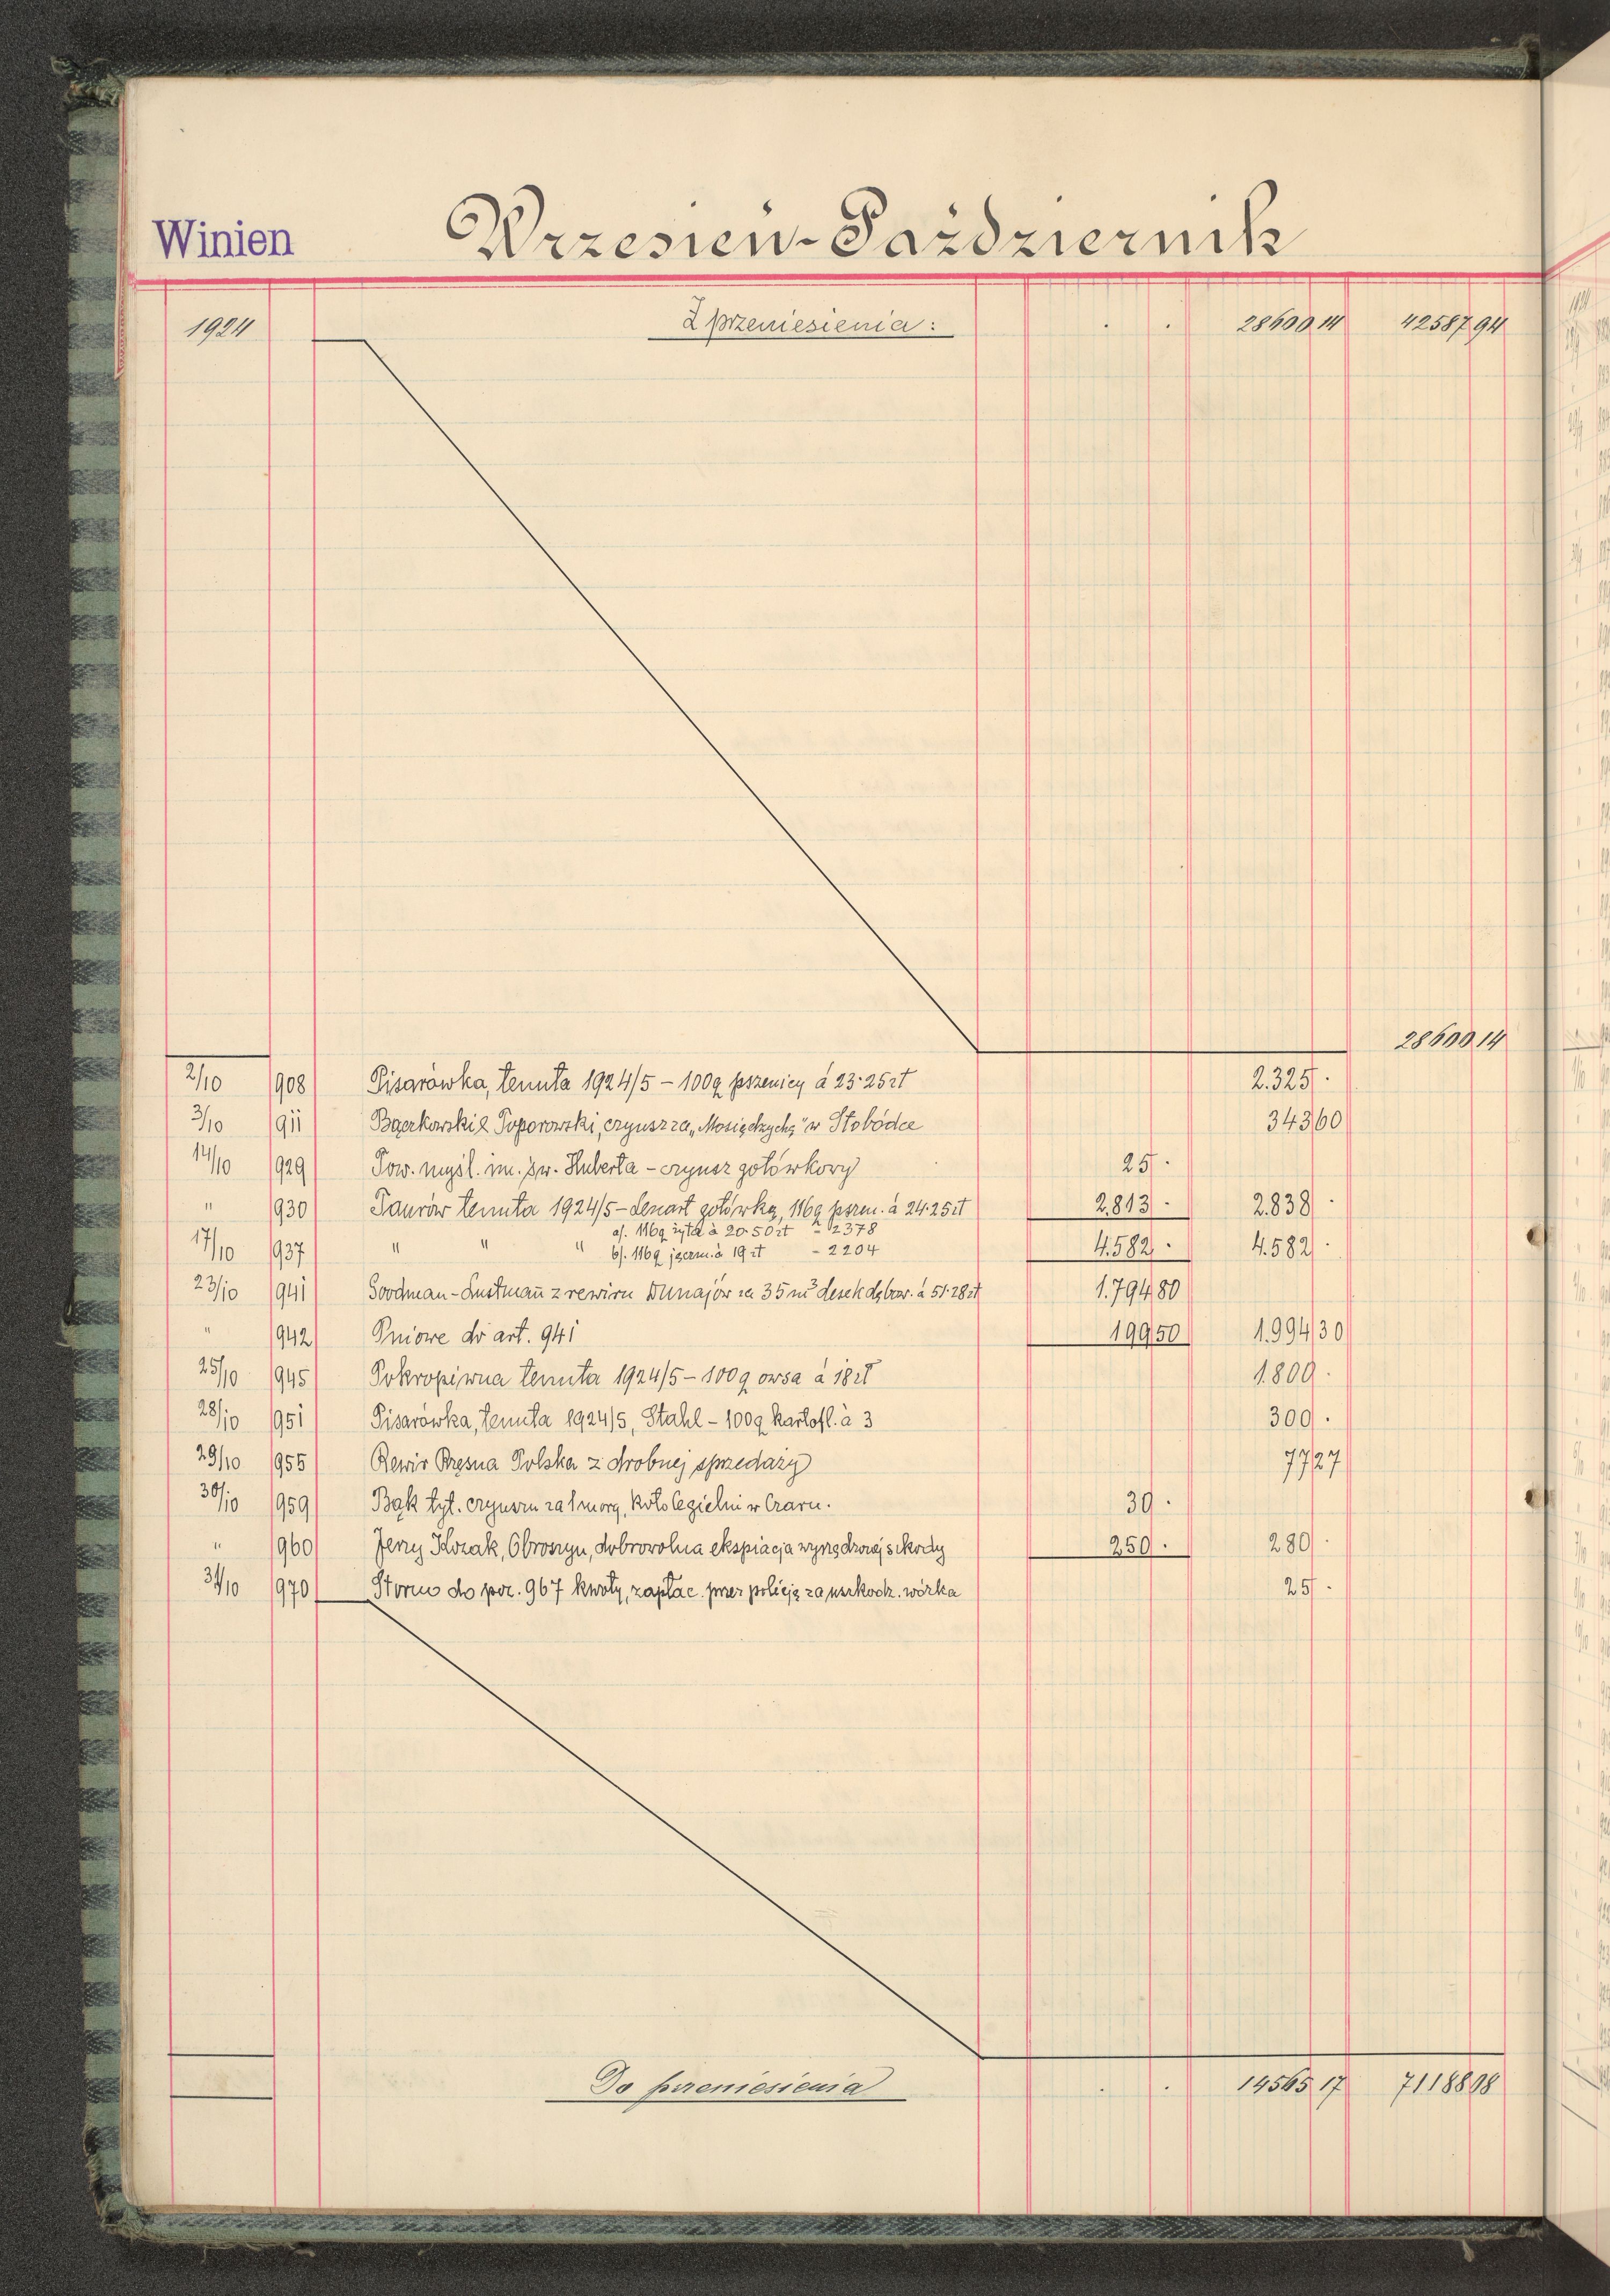 Winien Wrzesień-Październik
1924 Z przeniesienia: . . 28600 14 42587 94
28600 14
2/10 908 Pisarówka, tenuta 1924/5 - 100q pszenicy á 23·25 zł 2.325 .
3/10 911 Poporowski, czynsz za „Mosiędzychę" w Słobódce 343 60
14/10 929 Tow. myśl. im. św. Huberta - czynsz gotówkowy 25 .
" 930 Taurów tenuta 1924/5 - Lenart gotówką, 116q pszen. à 24·25 zł 2.813 . 2.838 .
a/. 116q żyta à 20·50 zł = 2378
17/10 937 " " " b/. 116q jęczm. à 19 zł - 2204 4.582 . 4.582 .
23/10 941 Goodman-Lustmañ z rewiru Dunajów za 35 m³ desek dębow. à 51·28 zł 1.794 80
" 942 Pniowe do art. 941 199 50 1.994 30
25/10 945 Pokropiwna tenuta 1924/5 - 100q owsa à 18 zł 1.800 .
28/10 951 Pisarówka, tenuta 1924/5, Stahl - 100q kartofl. à 3 300 .
29/10 955 Rewir Rzęsna Polska z drobnej sprzedaży 77 27
30/10 959 Bąk tyt. czynszu za 1 morg. koło Cegielni w Czarn. 30 .
" 960 Jerzy Kozak, Obroszyn, dobrowolna ekspiacja wyrządzonej szkody 250 . 280 .
31/10 970 Storno do poz. 967 kwoty, zapłac. przez policję za uszkodz. wózka 25 .
Do przeniesienia . . 14565 17 71188 08